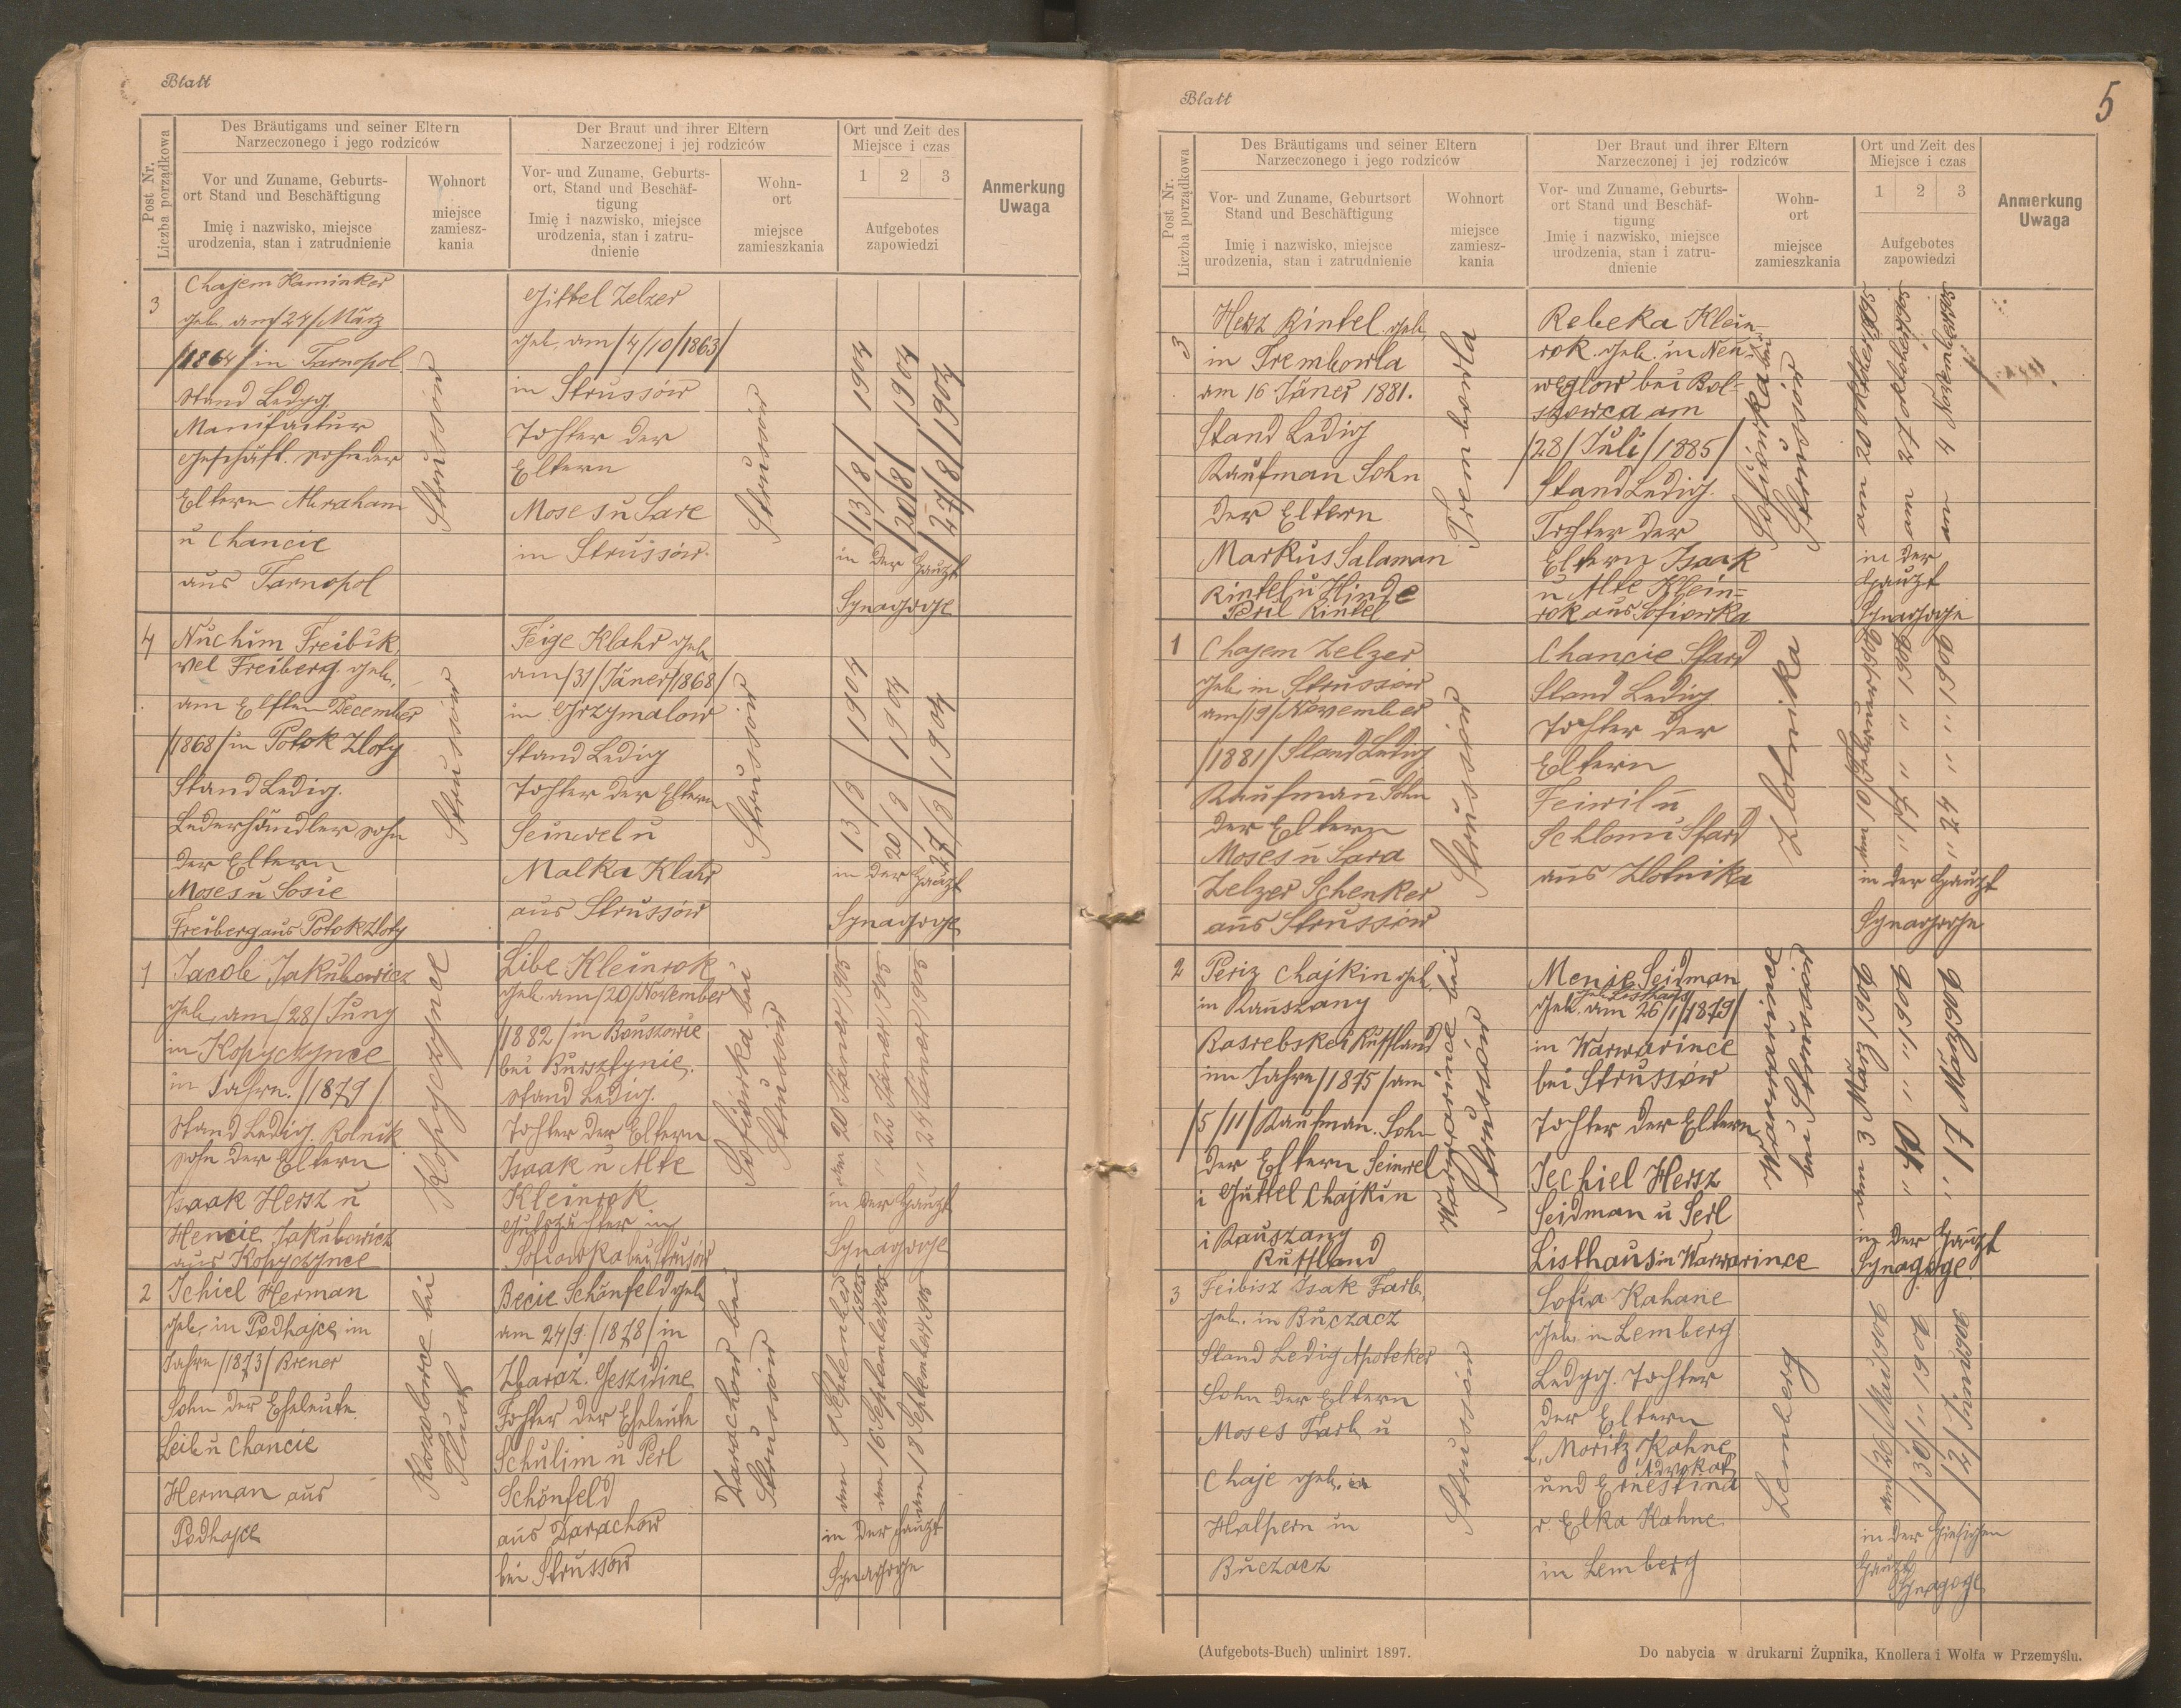 Blatt
Post Nr.
Liczba porządkowa
Des Bräutigams und seiner Eltern
Narzeczonego i jego rodziców
Vor und Zuname, Geburts-
ort Stand und Beschäftigung
Imię i nazwisko, miejsce
urodzenia, stan i zatrudnienie
Wohnort
miejsce
zamiesz-
kania
Der Braut und ihrer Eltern
Narzeczonej i jej rodziców
Vor- und Zuname, Geburts-
ort, Stand und Beschäf-
tigung
Imię i nazwisko, miejsce
urodzenia, stan i zatru-
dnienie
Wohn-
ort
miejsce
zamieszkania
Ort und Zeit des
Miejsce i czas
1 2 3
Aufgebotes
zapowiedzi
Anmerkung
Uwaga
3
Chajem Kaminker
geb. am/27/März
/1864/ in Tarnopol
Stand Ledyg
Manufactur
Geschäft. Sohn der
Eltern Abraham
u Chancie
aus Tarnopol
Strussów
Gittel Zelzer
geb. am /4/10/1863/
in Strussów
Tochter der
Eltern
Moses u Sare
in Strussów.
Strussów
/13/8/ 1904
/20/8/ 1904
/27/8/ 1904
in der Haupt
Synagoge
4
Nuchim Freibik
vel Freiberg geb.
am Elften December
/1868/ in Potok Zloty
Stand Ledig.
Lederhändler Sohn
der Eltern
Moses u Sosie
Freiberg aus Potok Zloty
Strussów
Feige Klahr geb.
am/31/Jäner/1868/
in Grzymalow
Stand Ledig
Tochter der Eltern
Seinwel u
Malka Klahr
aus Strussów
Strussów
13/8/1904
20/8/1904
27/8/1904
in der Haupt
Synagoge
1
Jacob Jakubowicz
geb. am/28/Juny
in Kopyczynce
in Jahrn./1879/
Stand Ledig. Rolnik
Sohn der Eltern
Isaak Hersz u
Hencie Jakubowicz
aus Kopyczynce
Kopyczynce
Libe Kleinrok
geb. am/20/November
/1882/ in Bouszowie
bei Bursztynie.
Stand Ledig.
Tochter der Eltern
Isaak u Alte
Kleinrok
Gutspächter in
Sofiowka bei Strusów
Sofiówka bei
Strusów
den 20 Jäner/905
" 22 Jäner/905
" 25 Jäner/905
in der Haupt
Synagoge
2
Ichiel Herman
geb. in Podhajce im
Jahre /1873/ Brener
Sohn der Eheleute
Leib u Chancie
Herman aus
Podhajce
bei
Becie Schönfeld geb.
am 24/9./1878/ in
Zbaraż.
Tochter der Eheleute
Schulim u Perl
Schönfeld
aus Darachow
bei Strussow
Darachow bei
Strussów
am 9 September
am 16 September/905
am 18 September/905
in der Haupt
Synagoge
Blatt
5
Post Nr.
Liczba porządkowa
Des Bräutigams und seiner Eltern
Narzeczonego i jego rodziców
Vor- und Zuname, Geburtsort
Stand und Beschäftigung
Imię i nazwisko, miejsce
urodzenia, stan i zatrudnienie
Wohnort
miejsce
zamiesz-
kania
Der Braut und ihrer Eltern
Narzeczonej i jej rodziców
Vor- und Zuname, Geburts-
ort Stand und Beschäf-
tigung
Imię i nazwisko, miejsce
urodzenia, stan i zatru-
dnienie
Wohn-
ort
miejsce
zamieszkania
Ort und Zeit des
Miejsce i czas
1 2 3
Aufgebotes
zapowiedzi
Anmerkung
Uwaga
3
Hersz Rintel geb.
in Trembowla
am 16 Jäner 1881.
Stand Ledig
Kaufman Sohn
der Eltern
Markus Salaman
Rintel u Hinde
Peril Rintel
Trembowla
Rebeka Klein-
rok. geb. in Nen-
weglow bei Bol-
szowca am
/28/Juli/1885/
Stand Ledig.
Tochter der
Eltern Isaak
u Alte Klein-
rok aus Sofiowka
Sofiówka bei
Strussów
am 20 Oktober
am 27 Oktober
am 4 November
in der
Haupt
Synagoge
1
Chajem Zelzer
geb in Strussow
am/19/November
/1881/ Stand Ledig
Kaufmann Sohn
der Eltern
Moses u Sara
Zelzer Schenker
aus Strussów
Strussów
Chancie Sfard
Stand Ledig
Tochter der
Eltern
Feiwil u
Schlomi Sfard
aus Zlotnika
Zlotnika
den 10 Februar 1906
" 17 " 1906
" 24 " 1906
in der Haupt
Synagoge
2
Periz Chajkin geb.
in Kauszany
Basrebskei Russland
im Jahre/1875/am
/5/11/ Kaufman. Sohn
der Eltern Seinwel
i Guttel Chajkin
i Kauszany
Russland
Warwarince bei
Strussów
Menie Seidman
geb. Listhaus
geb. am 26/1/1879/
in Warwarince
bei Strussów
Tochter der Eltern
Jechiel Hersz
Seidman u Serl
Listhaus in Warwarince
Warwarince
bei Strussów
am 3 März 1906
" 10 " 1906
" 17 März 906
in der Haupt
Synagoge
3
Feibisz Isak Farb.
geb. in Buczacz
Stand Ledig Apoteker
Sohn der Eltern
Moses Farb u
Chaje geb. in
Halpern in
Buczacz
Strussów
Sofia Kahane
geb. in Lemberg
Ledyg. Tochter
der Eltern
Moritz Kahne
Advokat
und Ernestina
v. Elka Kahne
in Lemberg
Lemberg
am/26/Mai 906
/30/ " 1906
/2/ Juni 906
in der Hiesigen
Haupt
Synagoge
(Aufgebots-Buch) unlinirt 1897.
Do nabycia w drukarni Żupnika, Knollera i Wolfa w Przemyślu.